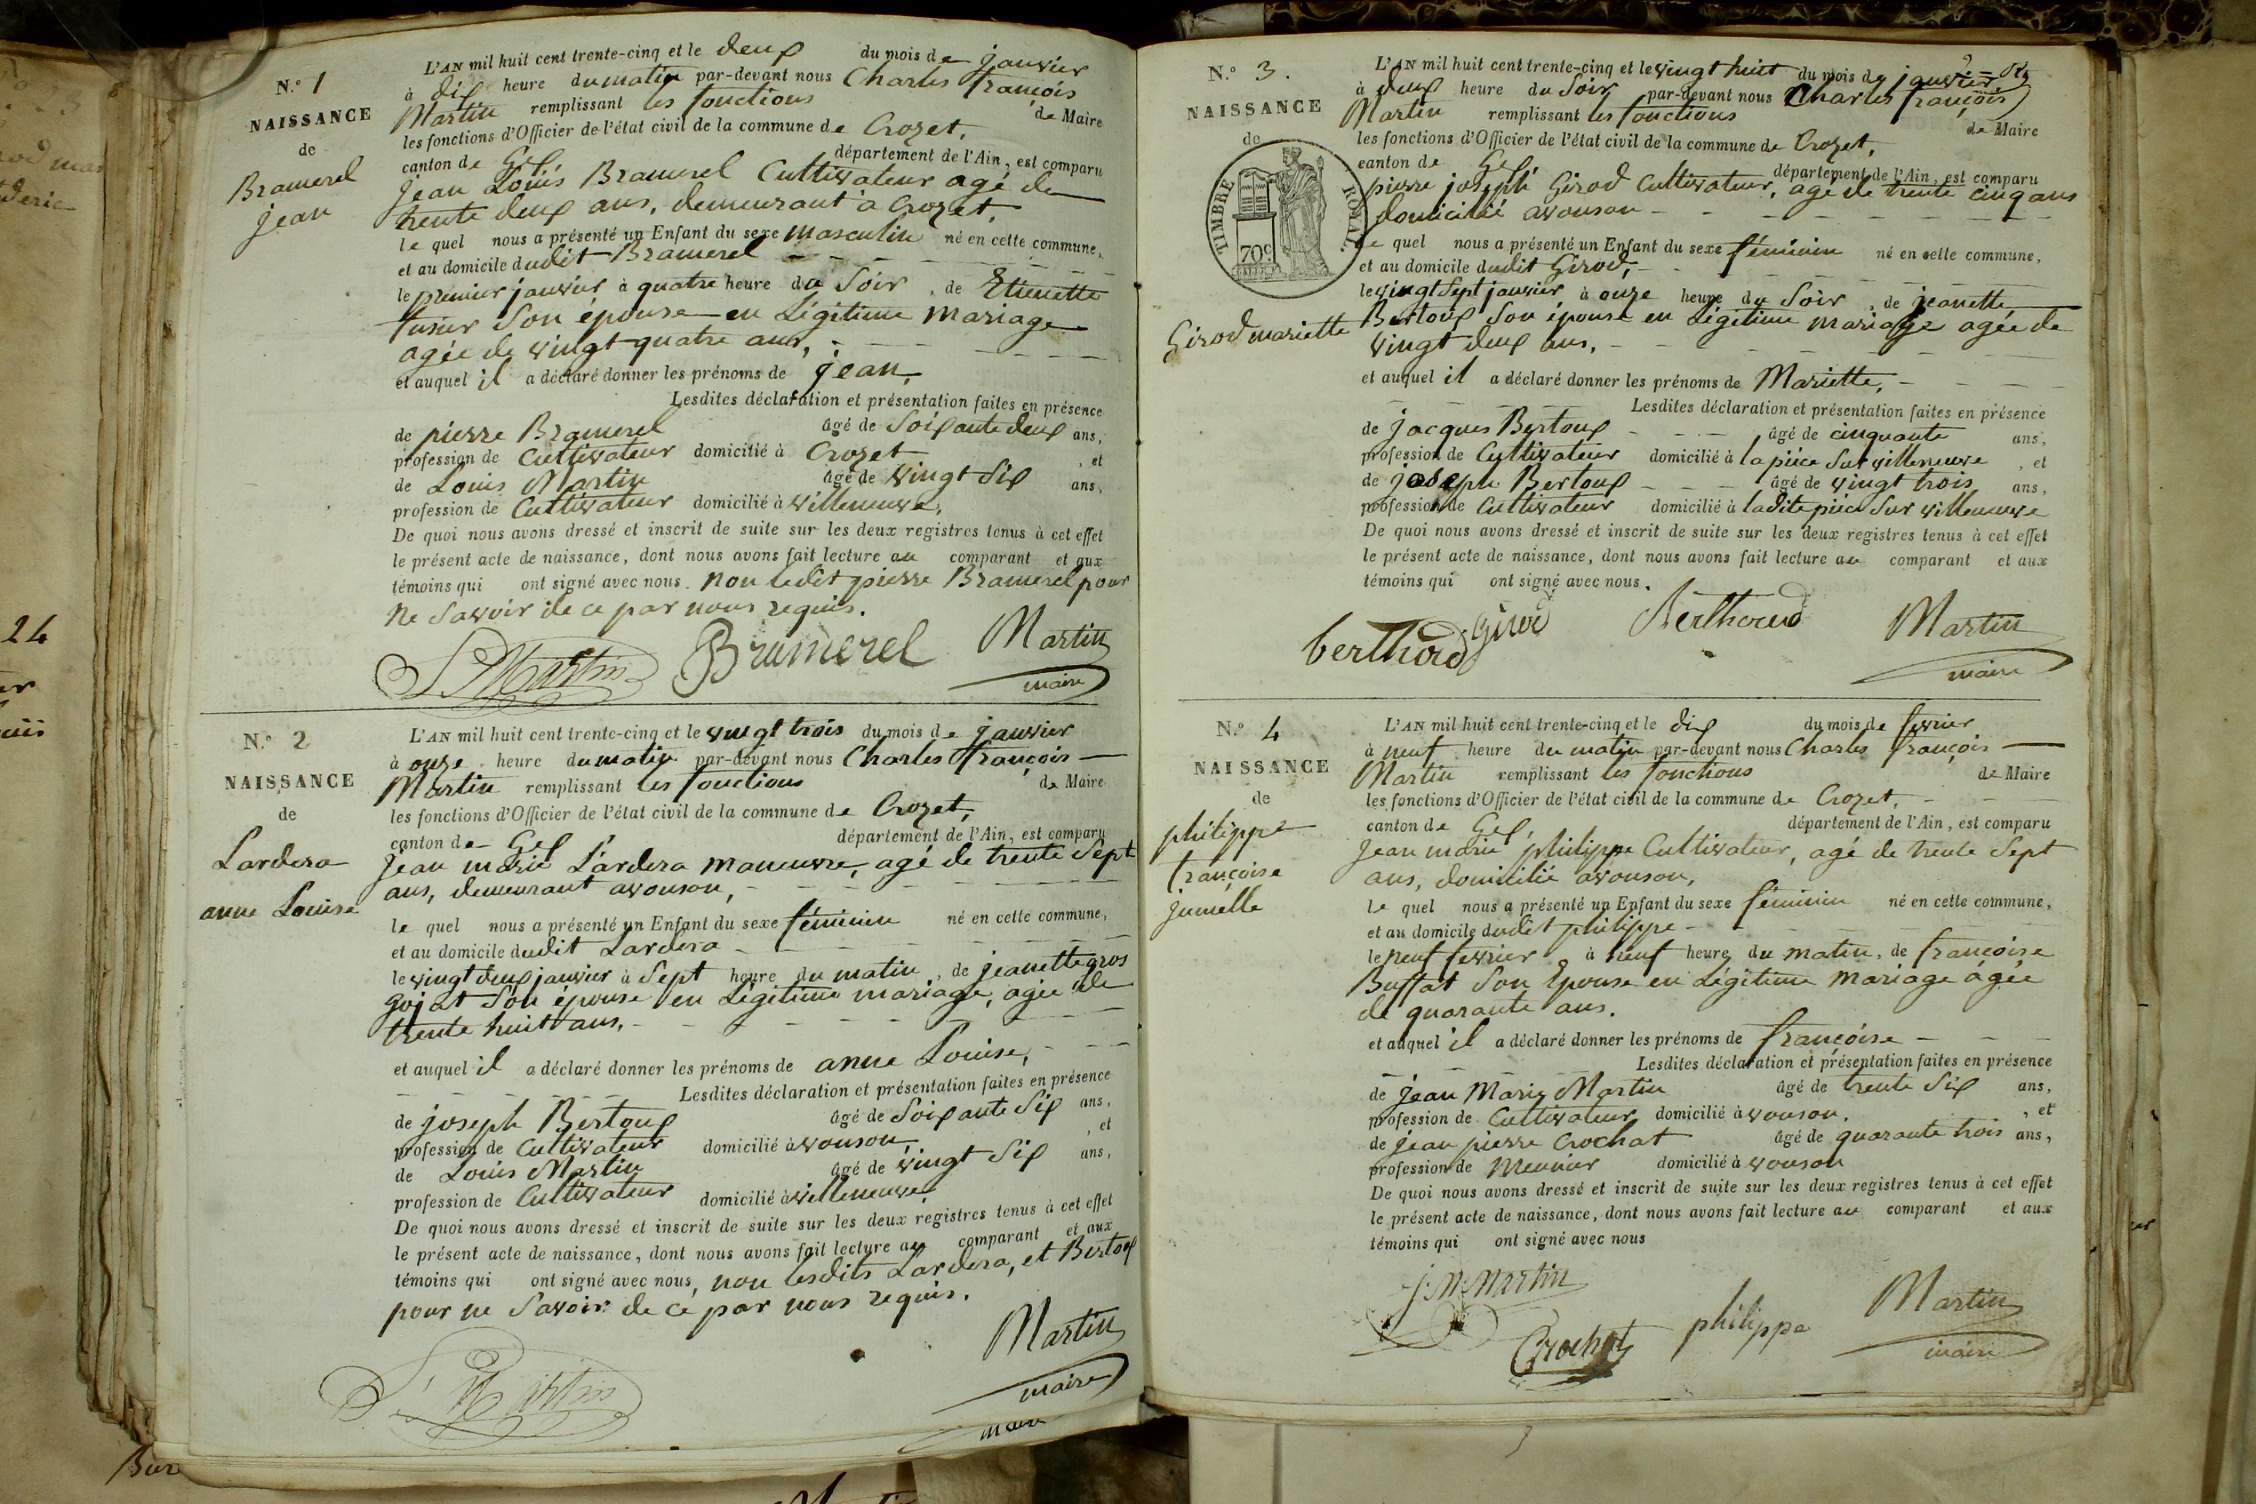 N.° 1
NAISSANCE
de
Bramerel
jean
L'AN mil huit cent trente-cinq et le deux du mois de janvier
à dix heure du matin par-devant nous Charles françois
Martin remplissant les fonctions de Maire
les fonctions d'Officier de l'état civil de la commune de Crozet,
canton de Gex, département de l'Ain, est comparu
jean Louis Bramerel Cultivateur agé de
trente deux ans, demeurant a Crozet,
le quel nous a présenté un Enfant du sexe masculin né en cette commune,
et au domicile dudit Bramerel
le premier janvier à quatre heure du Soir, de Etienette
fusier Son épouse en Légitime Mariage
agée de vingt quatre ans,
et auquel il a déclaré donner les prénoms de jean,
Lesdites déclaration et présentation faites en présence
de pierre Bramerel âgé de Soixante deux ans,
profession de Cultivateur domicilié à Crozet, et
de Louis Martin âgé de vingt Six ans,
profession de Cultivateur domicilié à villeneuve,
De quoi nous avons dressé et inscrit de suite sur les deux registres tenus à cet effet
le présent acte de naissance, dont nous avons fait lecture au comparant et aux
témoins qui ont signé avec nous. non ledit pierre Bramerel pour
ne Savoir de ce par nous requis.
L. Martin Bramerel Martin
maire
N.° 2
NAISSANCE
de
Lardera
anne Louise
L'AN mil huit cent trente-cinq et le vingt trois du mois de janvier
à onze heure du matin par-devant nous Charles françois
Martin remplissant les fonctions de Maire
les fonctions d'Officier de l'état civil de la commune de Crozet,
canton de Gex, département de l'Ain, est comparu
jean marie Lardera maneuvre, agé de trente Sept
ans, demeurant avouson,
le quel nous a présenté un Enfant du sexe féminin né en cette commune,
et au domicile dudit Lardera
le vingt deux janvier à Sept heure du matin, de jeanette gros
gojat Son épouse en Légitime mariage, agée de
trente huit ans,
et auquel il a déclaré donner les prénoms de anne Louise,
Lesdites déclaration et présentation faites en présence
de joseph Bertoux âgé de Soixante Six ans,
profession de Cultivateur domicilié à vouson, et
de Louis Martin âgé de vingt Six ans,
profession de Cultivateur domicilié à villeneuve
De quoi nous avons dressé et inscrit de suite sur les deux registres tenus à cet effet
le présent acte de naissance, dont nous avons fait lecture au comparant et aux
témoins qui ont signé avec nous, non lesdits Lardera, et Bertoux
pour ne Savoir de ce par nous requis.
L. Martin Martin
maire
maire
N.° 3.
NAISSANCE
de
TIMBRE ROYAL.
70c
Girod mariette
L'AN mil huit cent trente-cinq et le vingt huit du mois de janvier
à deux heure du Soir par-devant nous Charles françois
Martin remplissant les fonctions de Maire
les fonctions d'Officier de l'état civil de la commune de Crozet,
canton de Gex département de l'Ain, est comparu
pierre joseph Girod Cultivateur, agé de trente cinq ans
domicilié avouson
le quel nous a présenté un Enfant du sexe féminin né en cette commune,
et au domicile dudit Girod,
le vingt Sept janvier à onze heure du Soir, de jeanette
Bertoux Son épouse en Légitime mariage agée de
vingt deux ans,
et auquel il a déclaré donner les prénoms de Mariette,
Lesdites déclaration et présentation faites en présence
de jacques Bertoux âgé de cinquante ans,
profession de Cultivateur domicilié à la pièce Sur villeneuve, et
de joseph Bertoux âgé de vingt trois ans,
profession de Cultivateur domicilié à ladite pièce Sur villeneuve
De quoi nous avons dressé et inscrit de suite sur les deux registres tenus à cet effet
le présent acte de naissance, dont nous avons fait lecture au comparant et aux
témoins qui ont signé avec nous.
berthoud Girod Berthoud Martin
maire
N.° 4
NAISSANCE
de
philippe
françoise
jumelle
L'AN mil huit cent trente-cinq et le dix du mois de fevrier
à neuf heure du matin par-devant nous Charles françois
Martin remplissant les fonctions de Maire
les fonctions d'Officier de l'état civil de la commune de Crozet,
canton de Gex, département de l'Ain, est comparu
jean marie philippe Cultivateur, agé de trente Sept
ans, domicilié avouson,
le quel nous a présenté un Enfant du sexe féminin né en cette commune,
et au domicile dudit philippe
le neuf fevrier à neuf heure du matin, de françoise
Buffat Son Epouse en Légitime Mariage agée
de quarante ans.
et auquel il a déclaré donner les prénoms de françoise
Lesdites déclaration et présentation faites en présence
de jean Marie Martin âgé de trente Six ans,
profession de Cultivateur domicilié à vouson, et
de jean pierre Crochat âgé de quarante trois ans,
profession de Meunier domicilié à vouson
De quoi nous avons dressé et inscrit de suite sur les deux registres tenus à cet effet
le présent acte de naissance, dont nous avons fait lecture au comparant et aux
témoins qui ont signé avec nous
j. M. Martin Crochat philippe Martin
maire